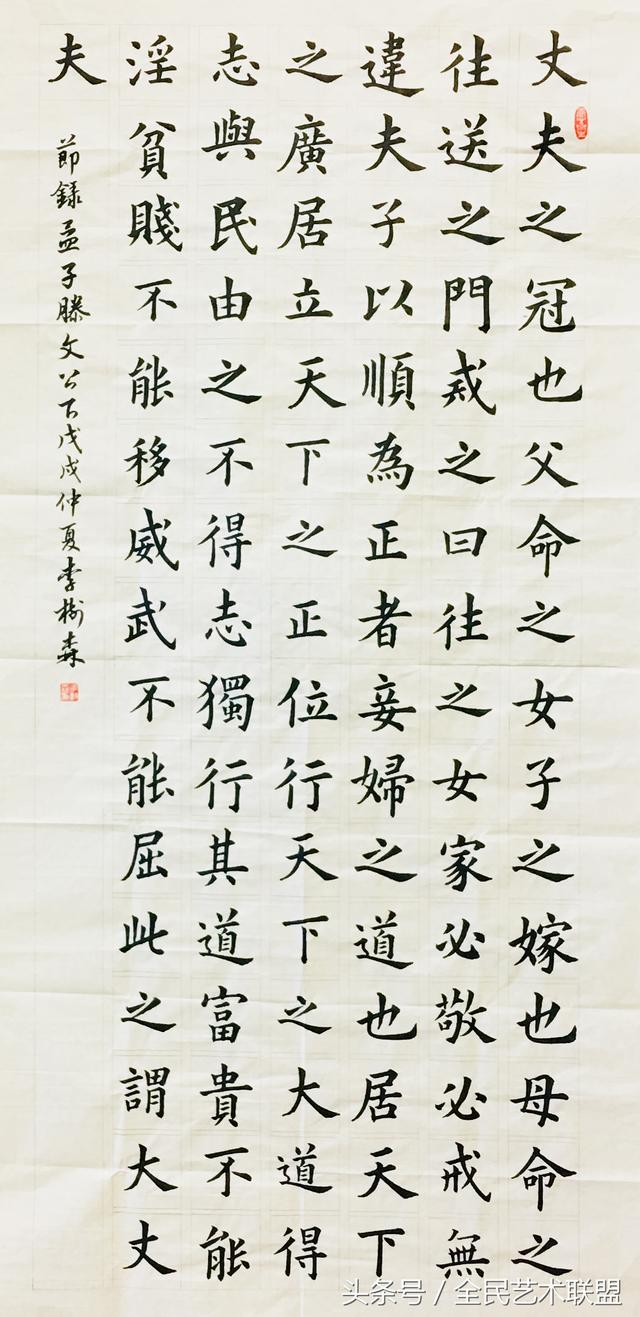 丈夫之冠也父命之女子之嫁也母命之
往送之門戒之曰往之女家必敬必戒無
違夫子以順為正者妾婦之道也居天下
之廣居立天下之正位行天下之大道得
志與民由之不得志獨行其道富貴不能
淫貧賤不能移威武不能屈此之謂大丈
夫
節錄孟子滕文公下戊戌仲夏李樹森
头条号 / 全民艺术联盟